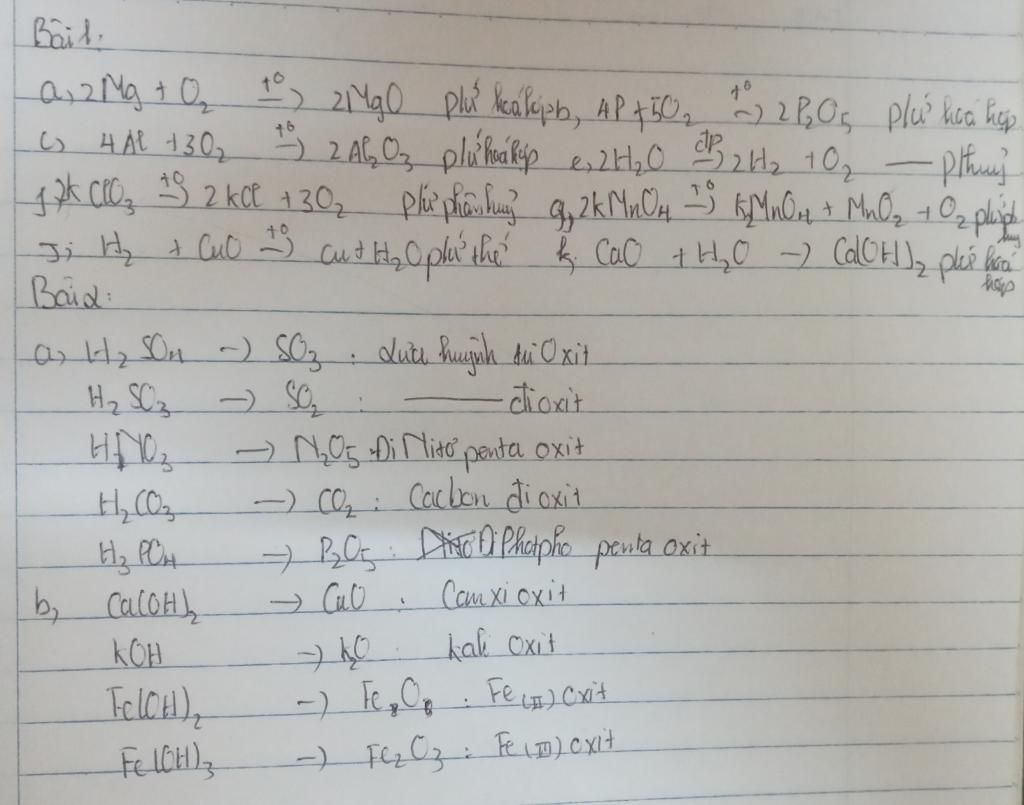 Bài 1:
a, 2Mg + O2 t°→ 2MgO pứ hoá hợp b, 4P + 5O2 t°→ 2P2O5 pứ hoá hợp
c, 4Al + 3O2 t°→ 2Al2O3 pứ hoá hợp e, 2H2O đp→ 2H2 + O2 — phuỷ
2KClO3 t°→ 2KCl + 3O2 pứ phân huỷ g, 2KMnO4 t°→ K2MnO4 + MnO2 + O2
H2 + CuO t°→ Cu + H2O pứ thế k, CaO + H2O → Ca(OH)2 pứ hoá hợp
Bài 2:
a, H2SO4 → SO3 : Lưu huỳnh tri Oxit
H2SO3 → SO2 : — đi oxit
HNO3 → N2O5 Đi Nitơ penta oxit
H2CO3 → CO2 : Cacbon đi oxit
H3PO4 → P2O5 : Đi Photpho penta oxit
b, Ca(OH)2 → CaO : Canxi oxit
KOH → K2O kali oxit
Fe(OH)2 → : Fe (II) oxit
Fe(OH)3 → Fe2O3 : Fe (III) oxit